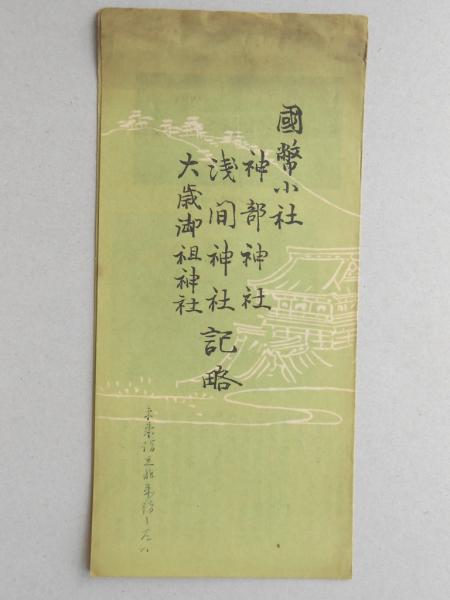 國幣小社
神部神社
浅间神社
大歳御祖神社
記略